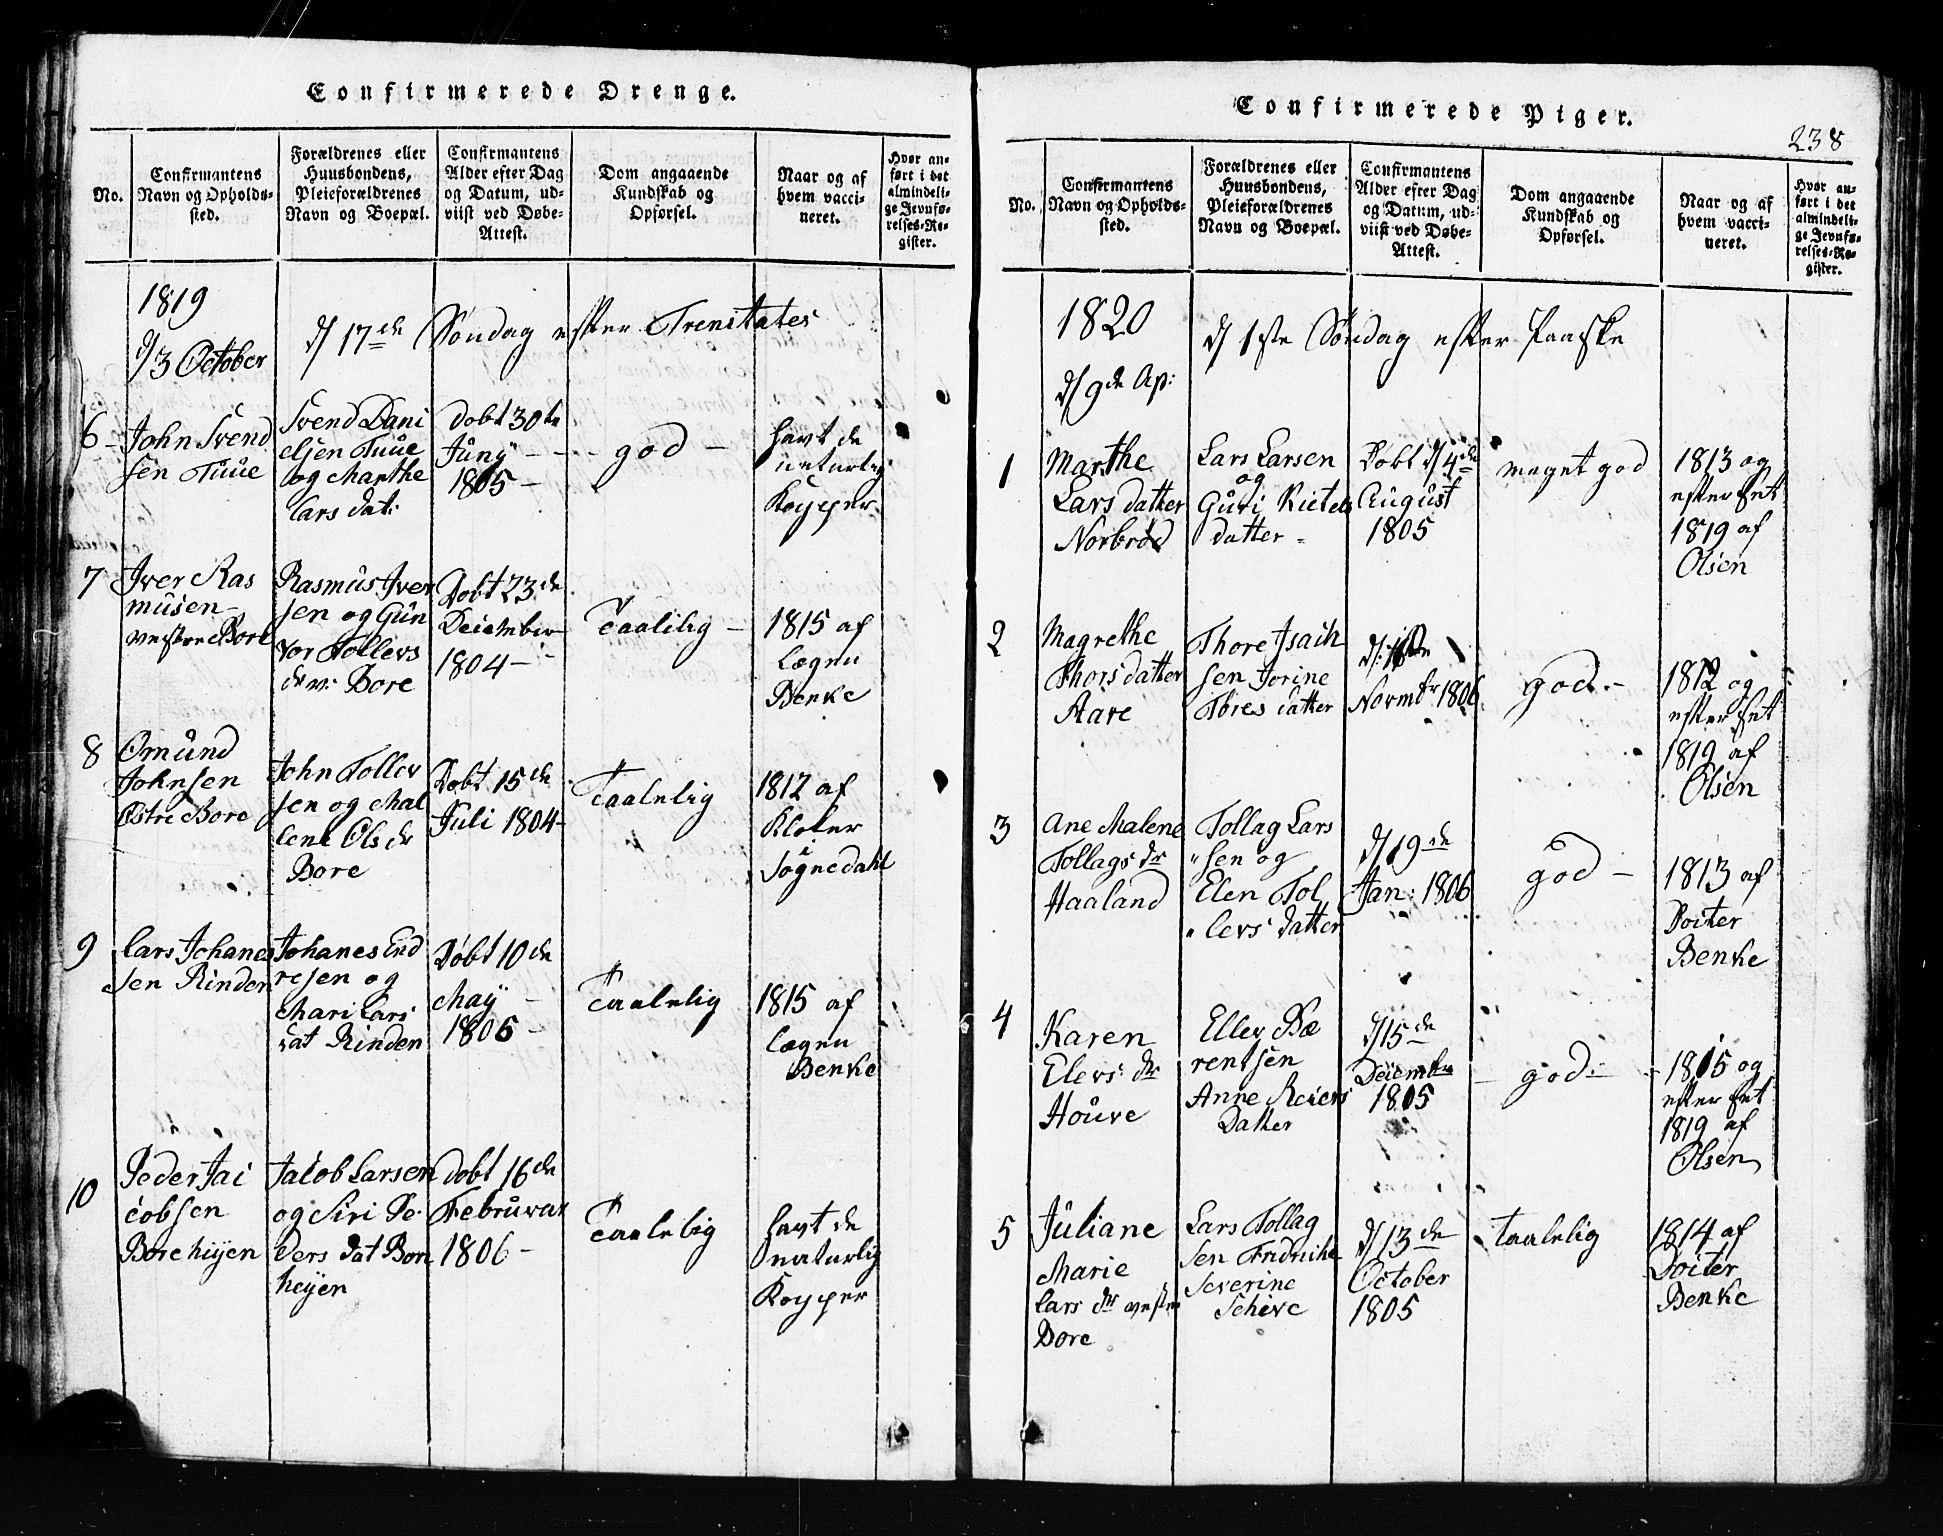 Confirmerede Drenge.
No.
Confirmantens
Navn og Opholds-
sted.
Forældrenes eller
Huusbondens,
Pleieforældrenes
Navn og Boepæl.
Confirmantens
Alder efter Dag
og Datum, ud-
viist ved Døbe-
Attest.
Dom angaaende
Kundskab og
Opførsel.
Naar og af
hvem vacci-
neret.
Hvor an-
ført i det
almindeli-
ge Jevnfø-
relses-Re-
gister.
1819
d/3 October
d/ 17de Søndag efter Trenitates
6
John Svend
sen Tuue
Svend Dani
elsen Tuue
og Marthe
Lars dat:
Døbt 30te
Juny
1805
god
havt de
naturlig
Kopper
7
Iver Ras
musen
vestre Bore
Rasmus Iver
sen og Gun
vor Tollevs
dr v: Bore
Døbt 23de
December
1804
Taalilig
1815 af
Lægen
Benke
8
Omund
Johnsen
Østre Bore
John Tollev
sen og Mal
lene Ols dr
Bore
Døbt 15de
Juli 1804
Taalelig
1812 af
Kloker
Sognedahl
9
Lars Johanes
sen Rinden
Johanes End
resen og
Mari Lars
dat Rinden
Døbt 10de
May
1805
Taalelig
1815 af
Lægen
Benke
10
Peder Jac
cobsen
Bore hijen
Jacob Larsen
og Siri Pe
ders dat Bore
heijen
Døbt 16de
Februwar
1806
Taalelig
havt de
naturlig
Kopper
Confirmerede Piger.
238
No.
Confirmantens
Navn og Opholds-
sted.
Forældrenes eller
Huusbondens,
Pleieforældrenes
Navn og Boepæl.
Confirmantens
Alder efter Dag
og Datum, ud-
viist ved Døbe-
Attest.
Dom angaaende
Kundskab og
Opførsel.
Naar og af
hvem vacci-
neret.
Hvor an-
ført i det
almindeli-
ge Jevnfø-
relses-Re-
gister.
1820
d/ 9de Ap:
d/ 1ste Søndag efter Paaske
1
Marthe
Lars datter
Norbrød
Lars Larsen
og
Guri
datter
Døbt d/4de
August
1805
meget god
1813 og
efterset
1819 af
Olsen
2
Magrethe
Thors datter
Aare
Thore Isach
sen Jorine
Tores datter
d: 1ste
Novmbr 1806
god
1812 og
efterset
1819 af
Olsen
3
Ane Malene
Tollags dr
Haaland
Tollag Lars
sen og
Elen Tol
levs datter
d/ 19de
Jan: 1806
god
1813 af
Docter
Benke
4
Karen
Elevs dr
Houve
Ellev Bæ
rentsen
Anne Reiers
Datter
d/15de
December
1805
god
1815 og
efterset
1819 af
Olsen
5
Juliane
Marie
Lars dr vestre
Bore
Lars Tollag
sen Fridriche
Severine
Schive
d/ 13de
October
1805
taalelig
1814 af
Docter
Benke